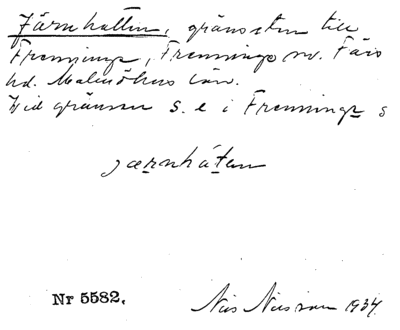 Järnhatten, gränssten till
Frenninge, Frenninge sn. Färs
hd. Malmöhus län.
Vid gränsen s. e i Frenninge s
jærnháten
Nr 5582.
Nils Nilsson 1934.